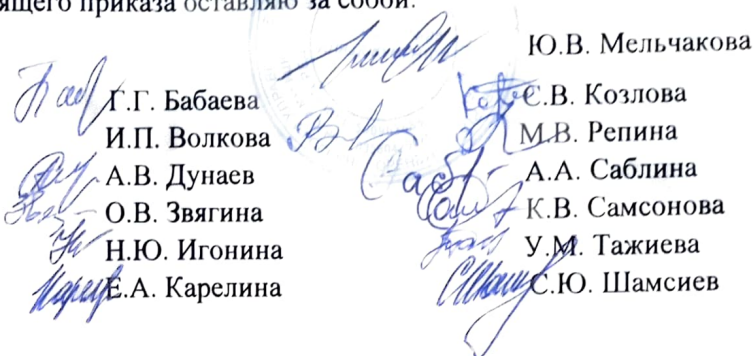 ящего приказа оставляю за собой.
Ю.В. Мельчакова
Г.Г. Бабаева
И.П. Волкова
А.В. Дунаев
О.В. Звягина
Н.Ю. Игонина
Е.А. Карелина
С.В. Козлова
М.В. Репина
А.А. Саблина
К.В. Самсонова
У.М. Тажиева
С.Ю. Шамсиев